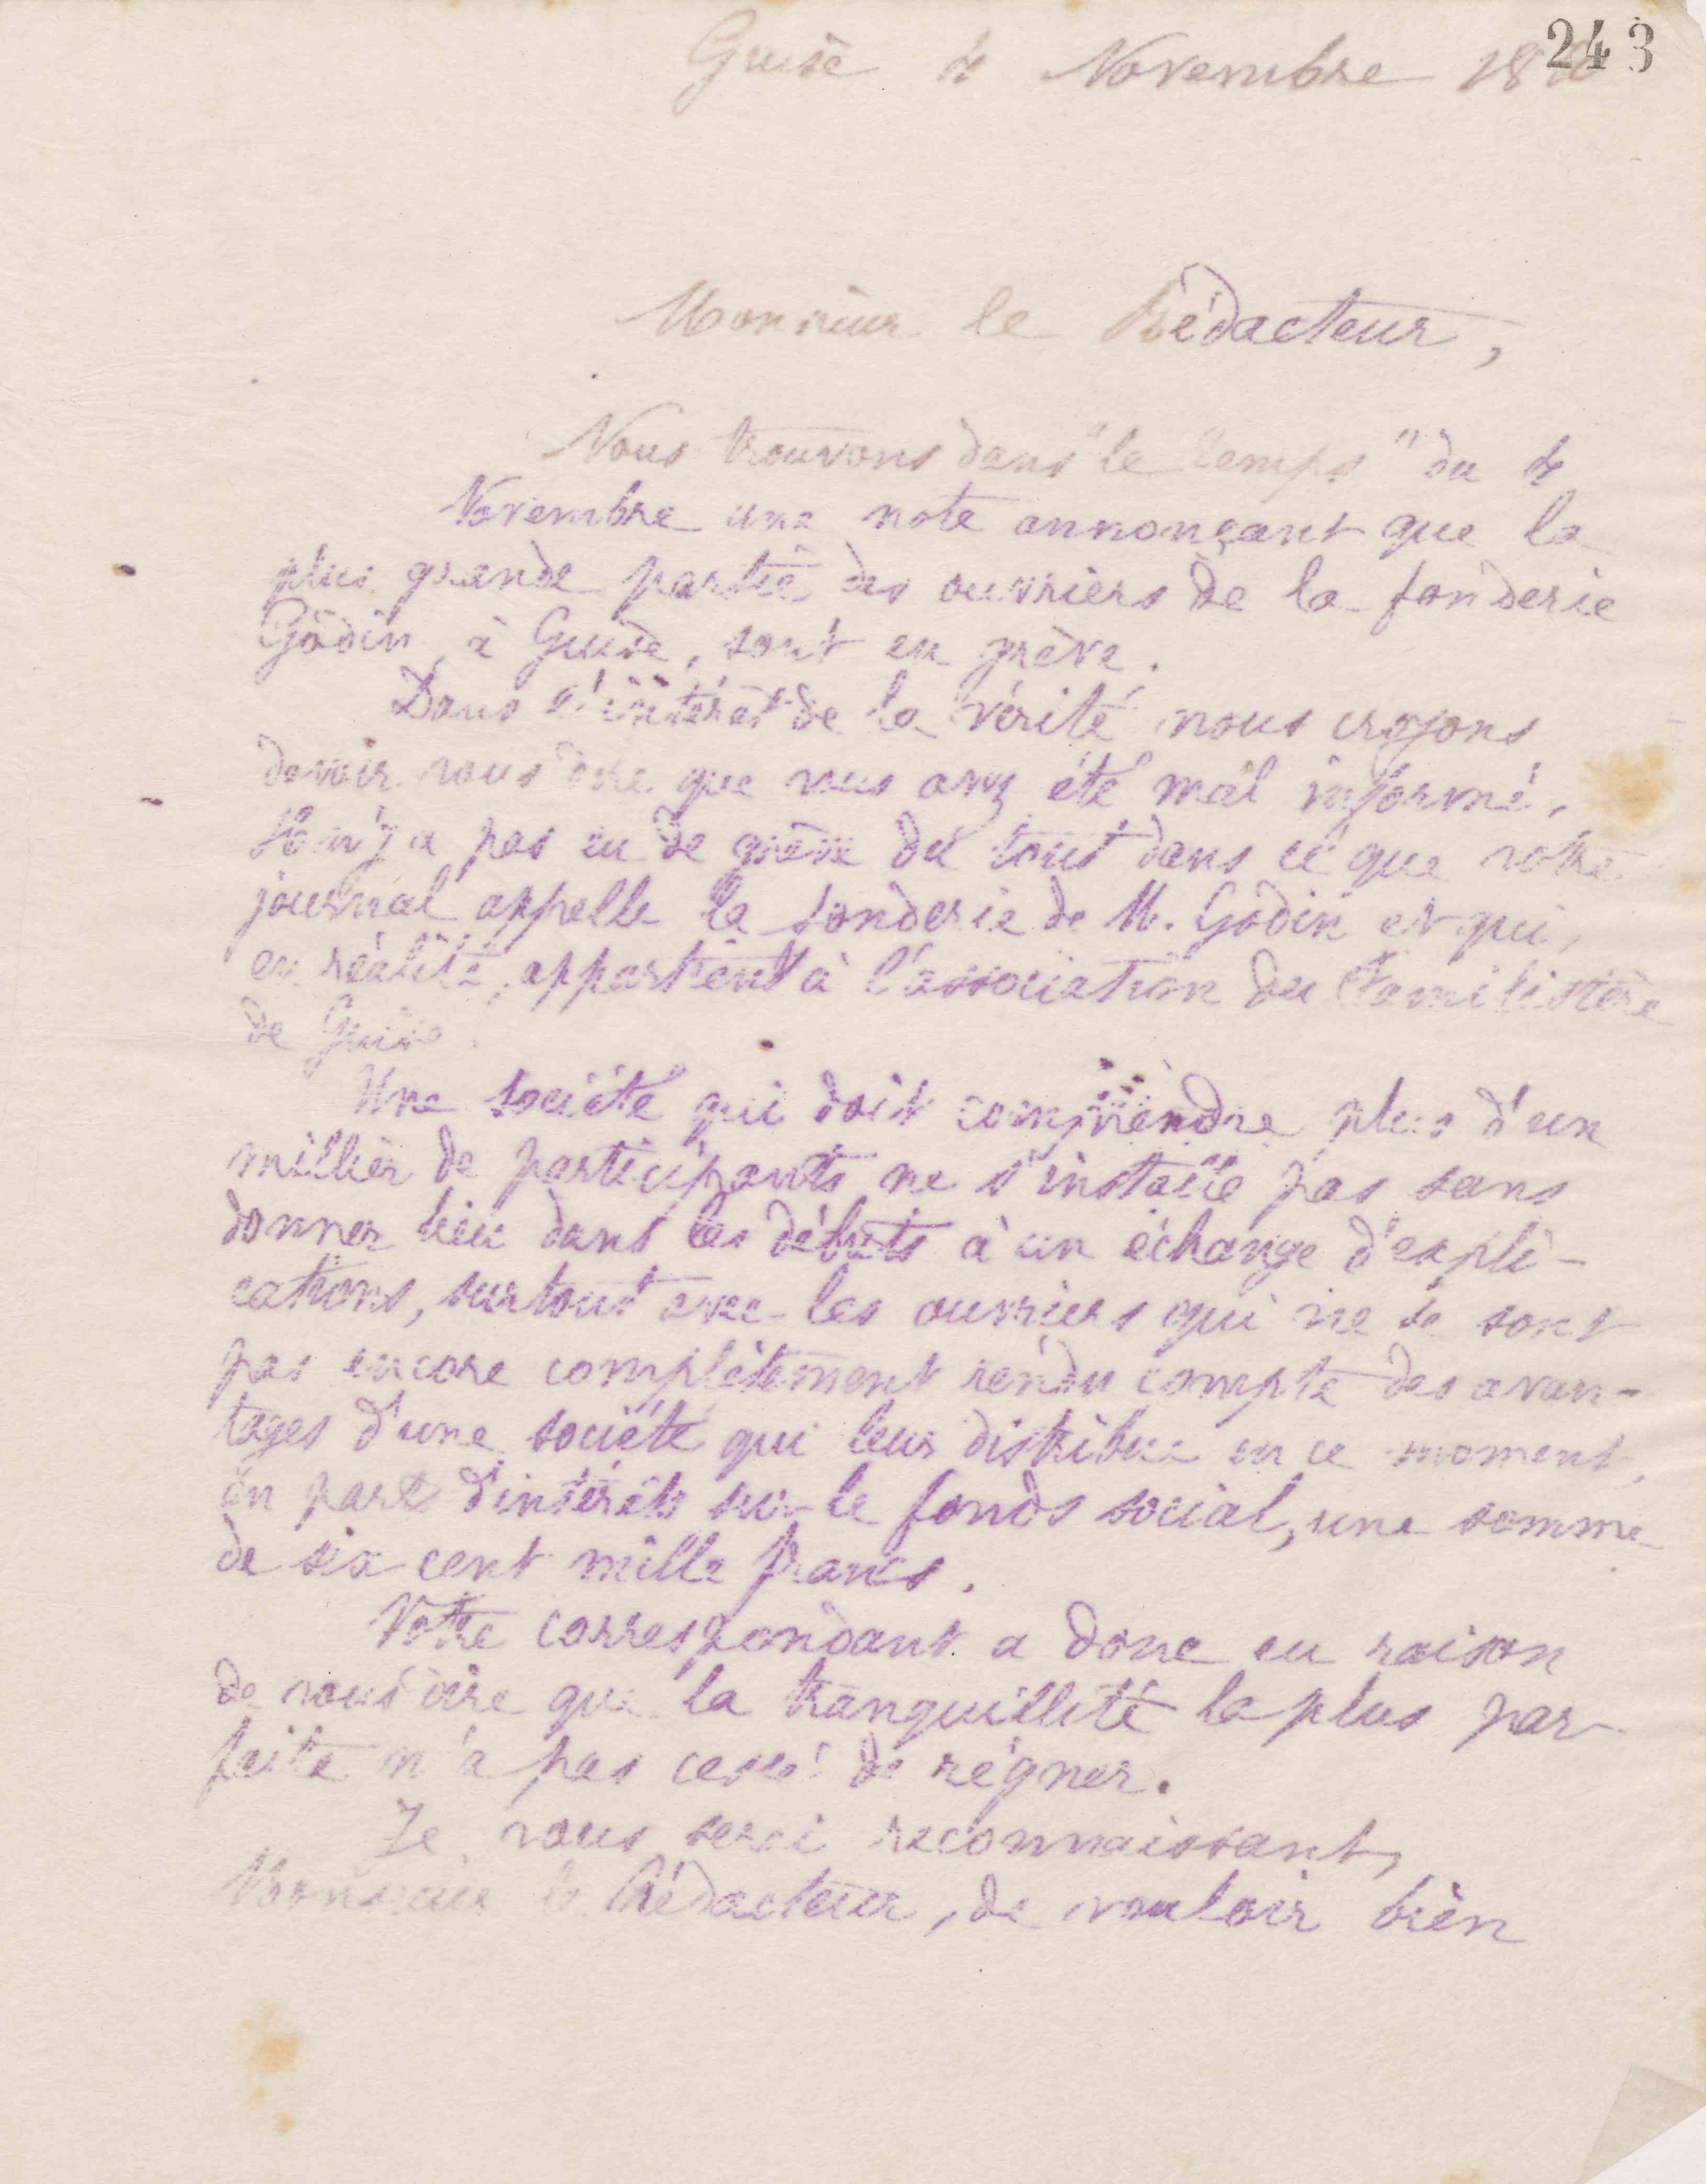 243
Guise le Novembre 18
Monsieur le Rédacteur,
Nous trouvons dans "le Temps" du
Novembre une note annonçant que la
plus grande partie des ouvriers de la fonderie
Godin, à Guise, sont en grève.
Dans l'intérêt de la vérité nous croyons
devoir vous dire que vous avez été mal informé.
Il n'y a pas eu de grève du tout dans ce que votre
journal appelle la fonderie de M. Godin et qui,
en réalité, appartient à l'association du Familistère
de Guise.
Une société qui doit comprendre plus d'un
millier de participants ne s'installe pas sans
donner lieu dans les débuts à un échange d'expli-
cations, surtout avec les ouvriers qui ne se sont
pas encore complètement rendu compte des avan-
tages d'une société qui leur distribue en ce moment,
en parts d'intérêts sur le fonds social, une somme
de six cent mille francs.
Votre correspondant a donc eu raison
de vous dire que la tranquillité la plus par-
faite n'a pas cessé de régner.
Je vous serai reconnaissant,
Monsieur le Rédacteur, de vouloir bien